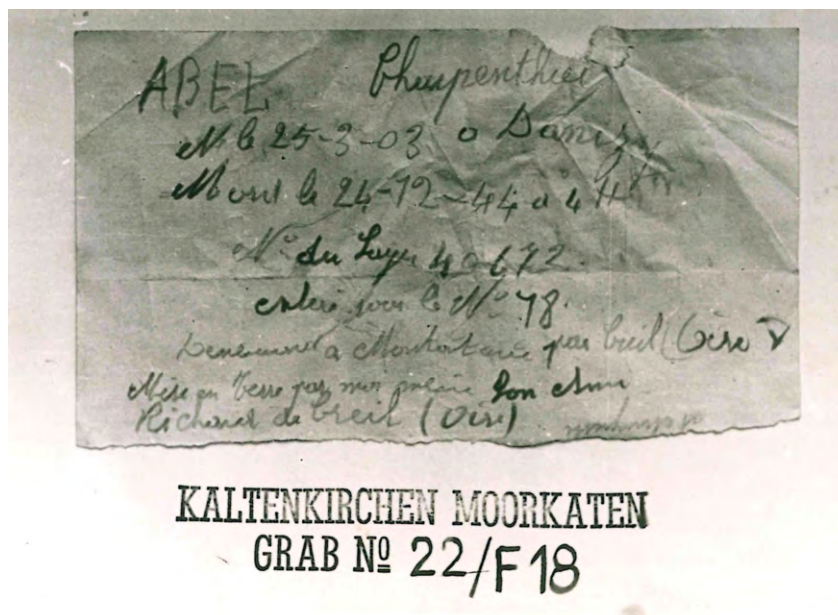 ABEL Charpenthier
N le 25-3-03 a Danizy
Mort le 24-12-44 a 4 H
No du Lager 40672
enterré sous le No 78
Demeurant a Montataire par Creil (Oise)
Mise en Terre par moi même Son Ami
Richard de Creil (Oise)
KALTENKIRCHEN MOORKATEN
GRAB No 22/F18